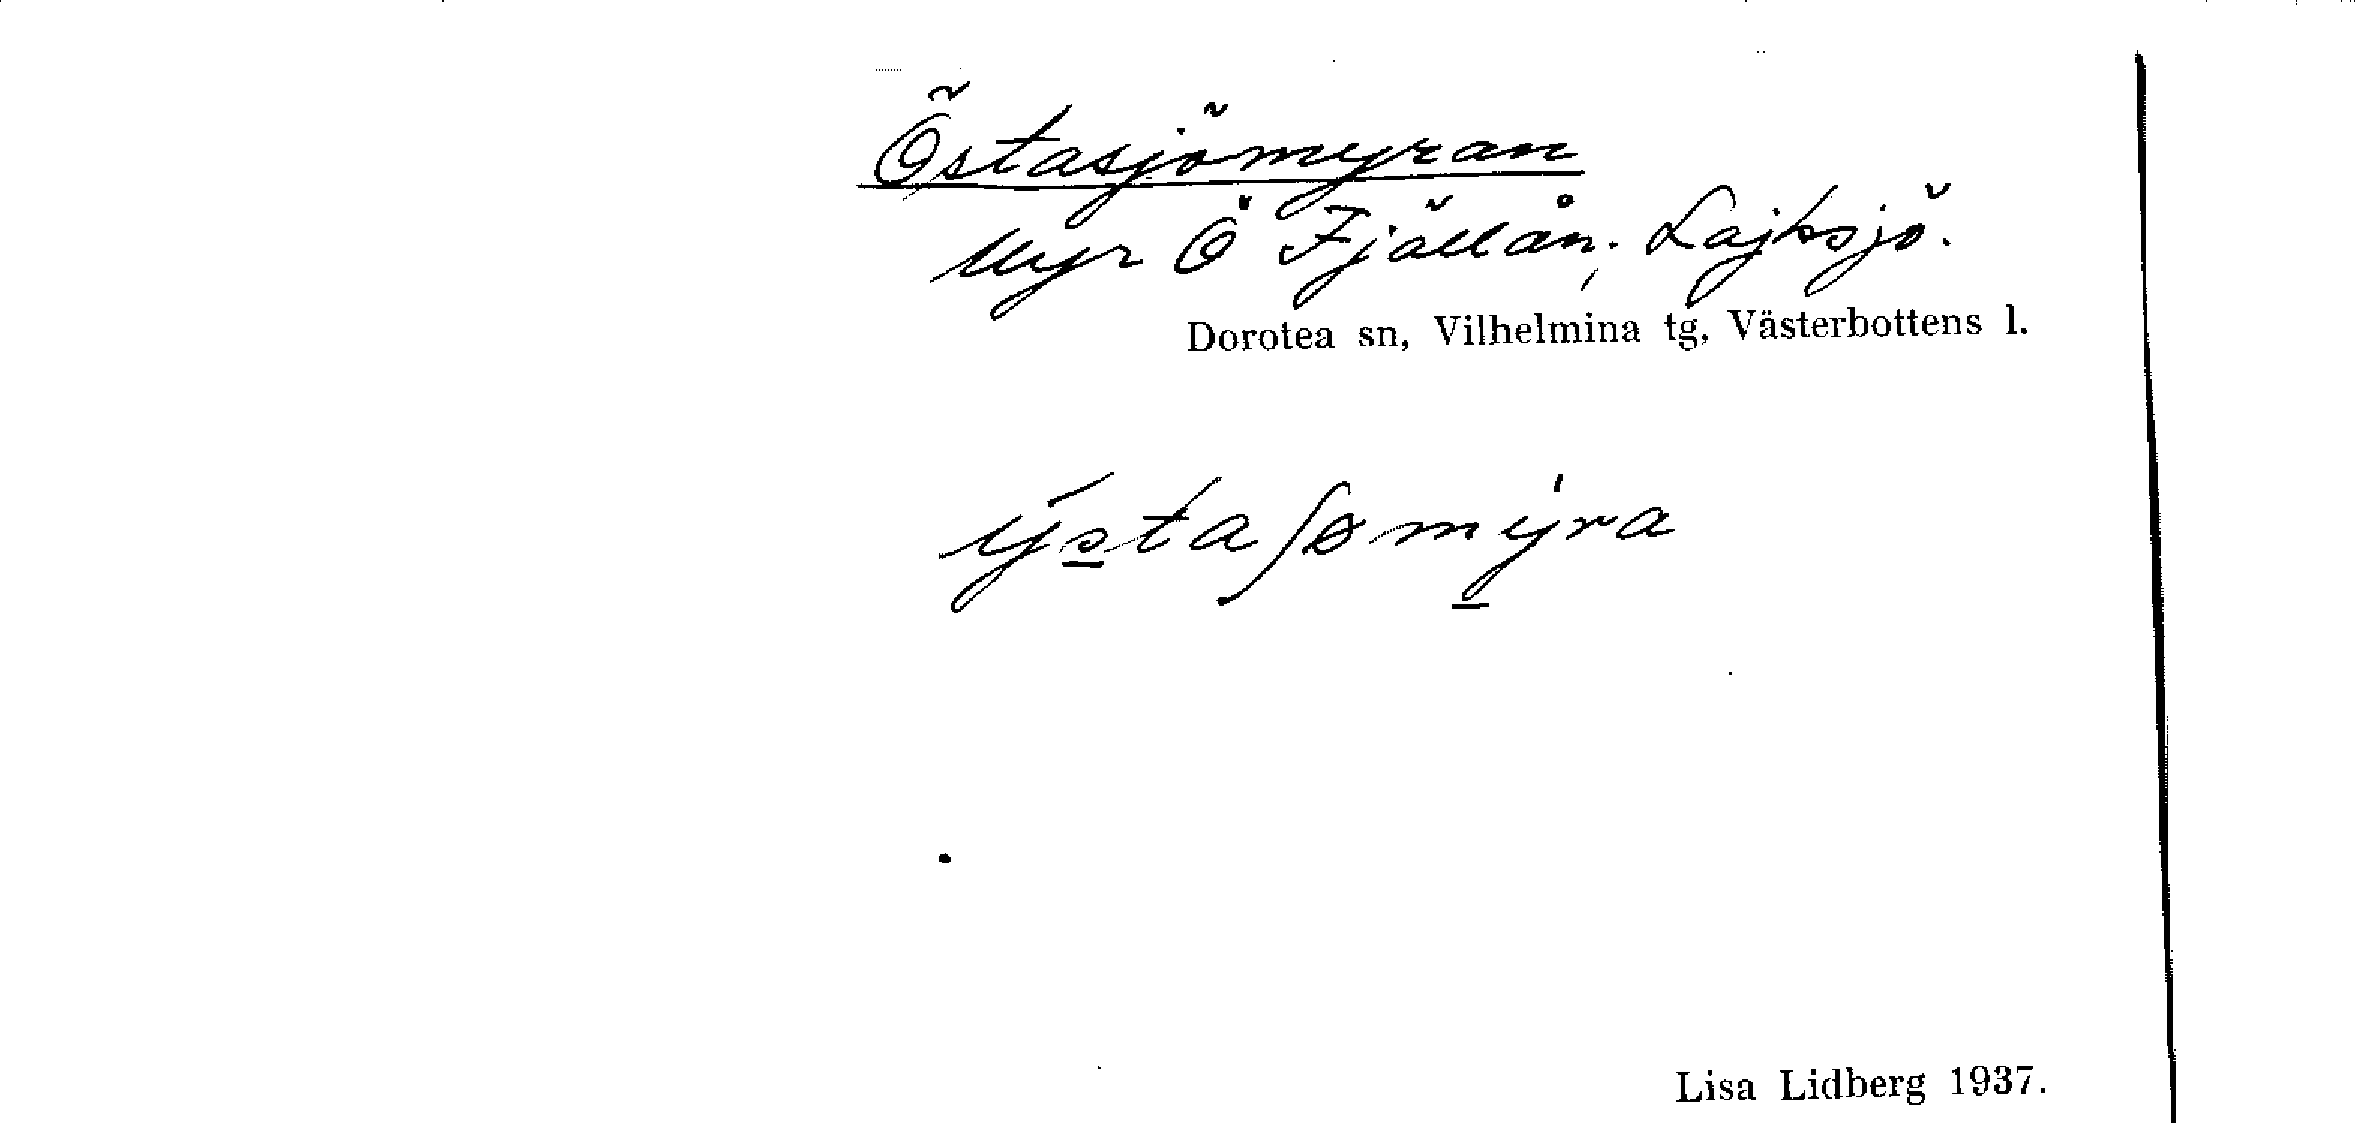 Östasjömyran
Myr Ö Fjällån, Lajksjö.
Dorotea sn, Vilhelmina tg, Västerbottens l.
ýsta ʃømýra
Lisa Lidberg 1937.